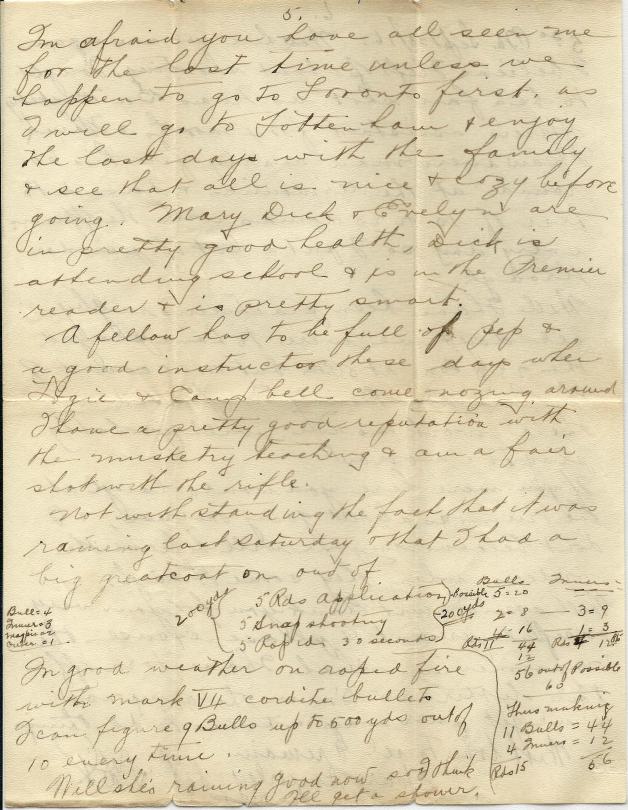 5.
I'm afraid you have all seen me
for the last time unless we
happen to go to Toronto first. as
I will go to Tottenham & enjoy
the last days with the family
& see that all is nice & cozy before
going. Mary Dick & Evelyn are
in pretty good health, Dick is
attending school & is in the Premier
reader & is pretty smart.
A fellow has to be full of pep &
a good instructor these days when
Logie & Campbell come nozing around
I have a pretty good reputation with
the musketry teaching & am a fair
shot with the rifle.
Not with standing the fact that it was
raining last saturday & that I had a
big greatcoat on out of
200 yds
5 Rds application
5 Snap shooting
5 Rapid 30 seconds
Possible
200 yds
Bull = 4
Inner = 3
Magpie = 2
Outer = 1.
Bulls
5 = 20
2 = 8
4 = 16
Rds 11 44
12
56 out of Possible
60
Inners
3 = 9
1 = 3
Rds 4 12
Thus making
11 Bulls = 44
4 Inners = 12
Rds 15 56
In good weather on rapid fire
with mark VII cordite bullets
I can figure 9 Bulls up to 500 yds out of
10 every time.
Well she's raining good now so I think
I'll get a shower.